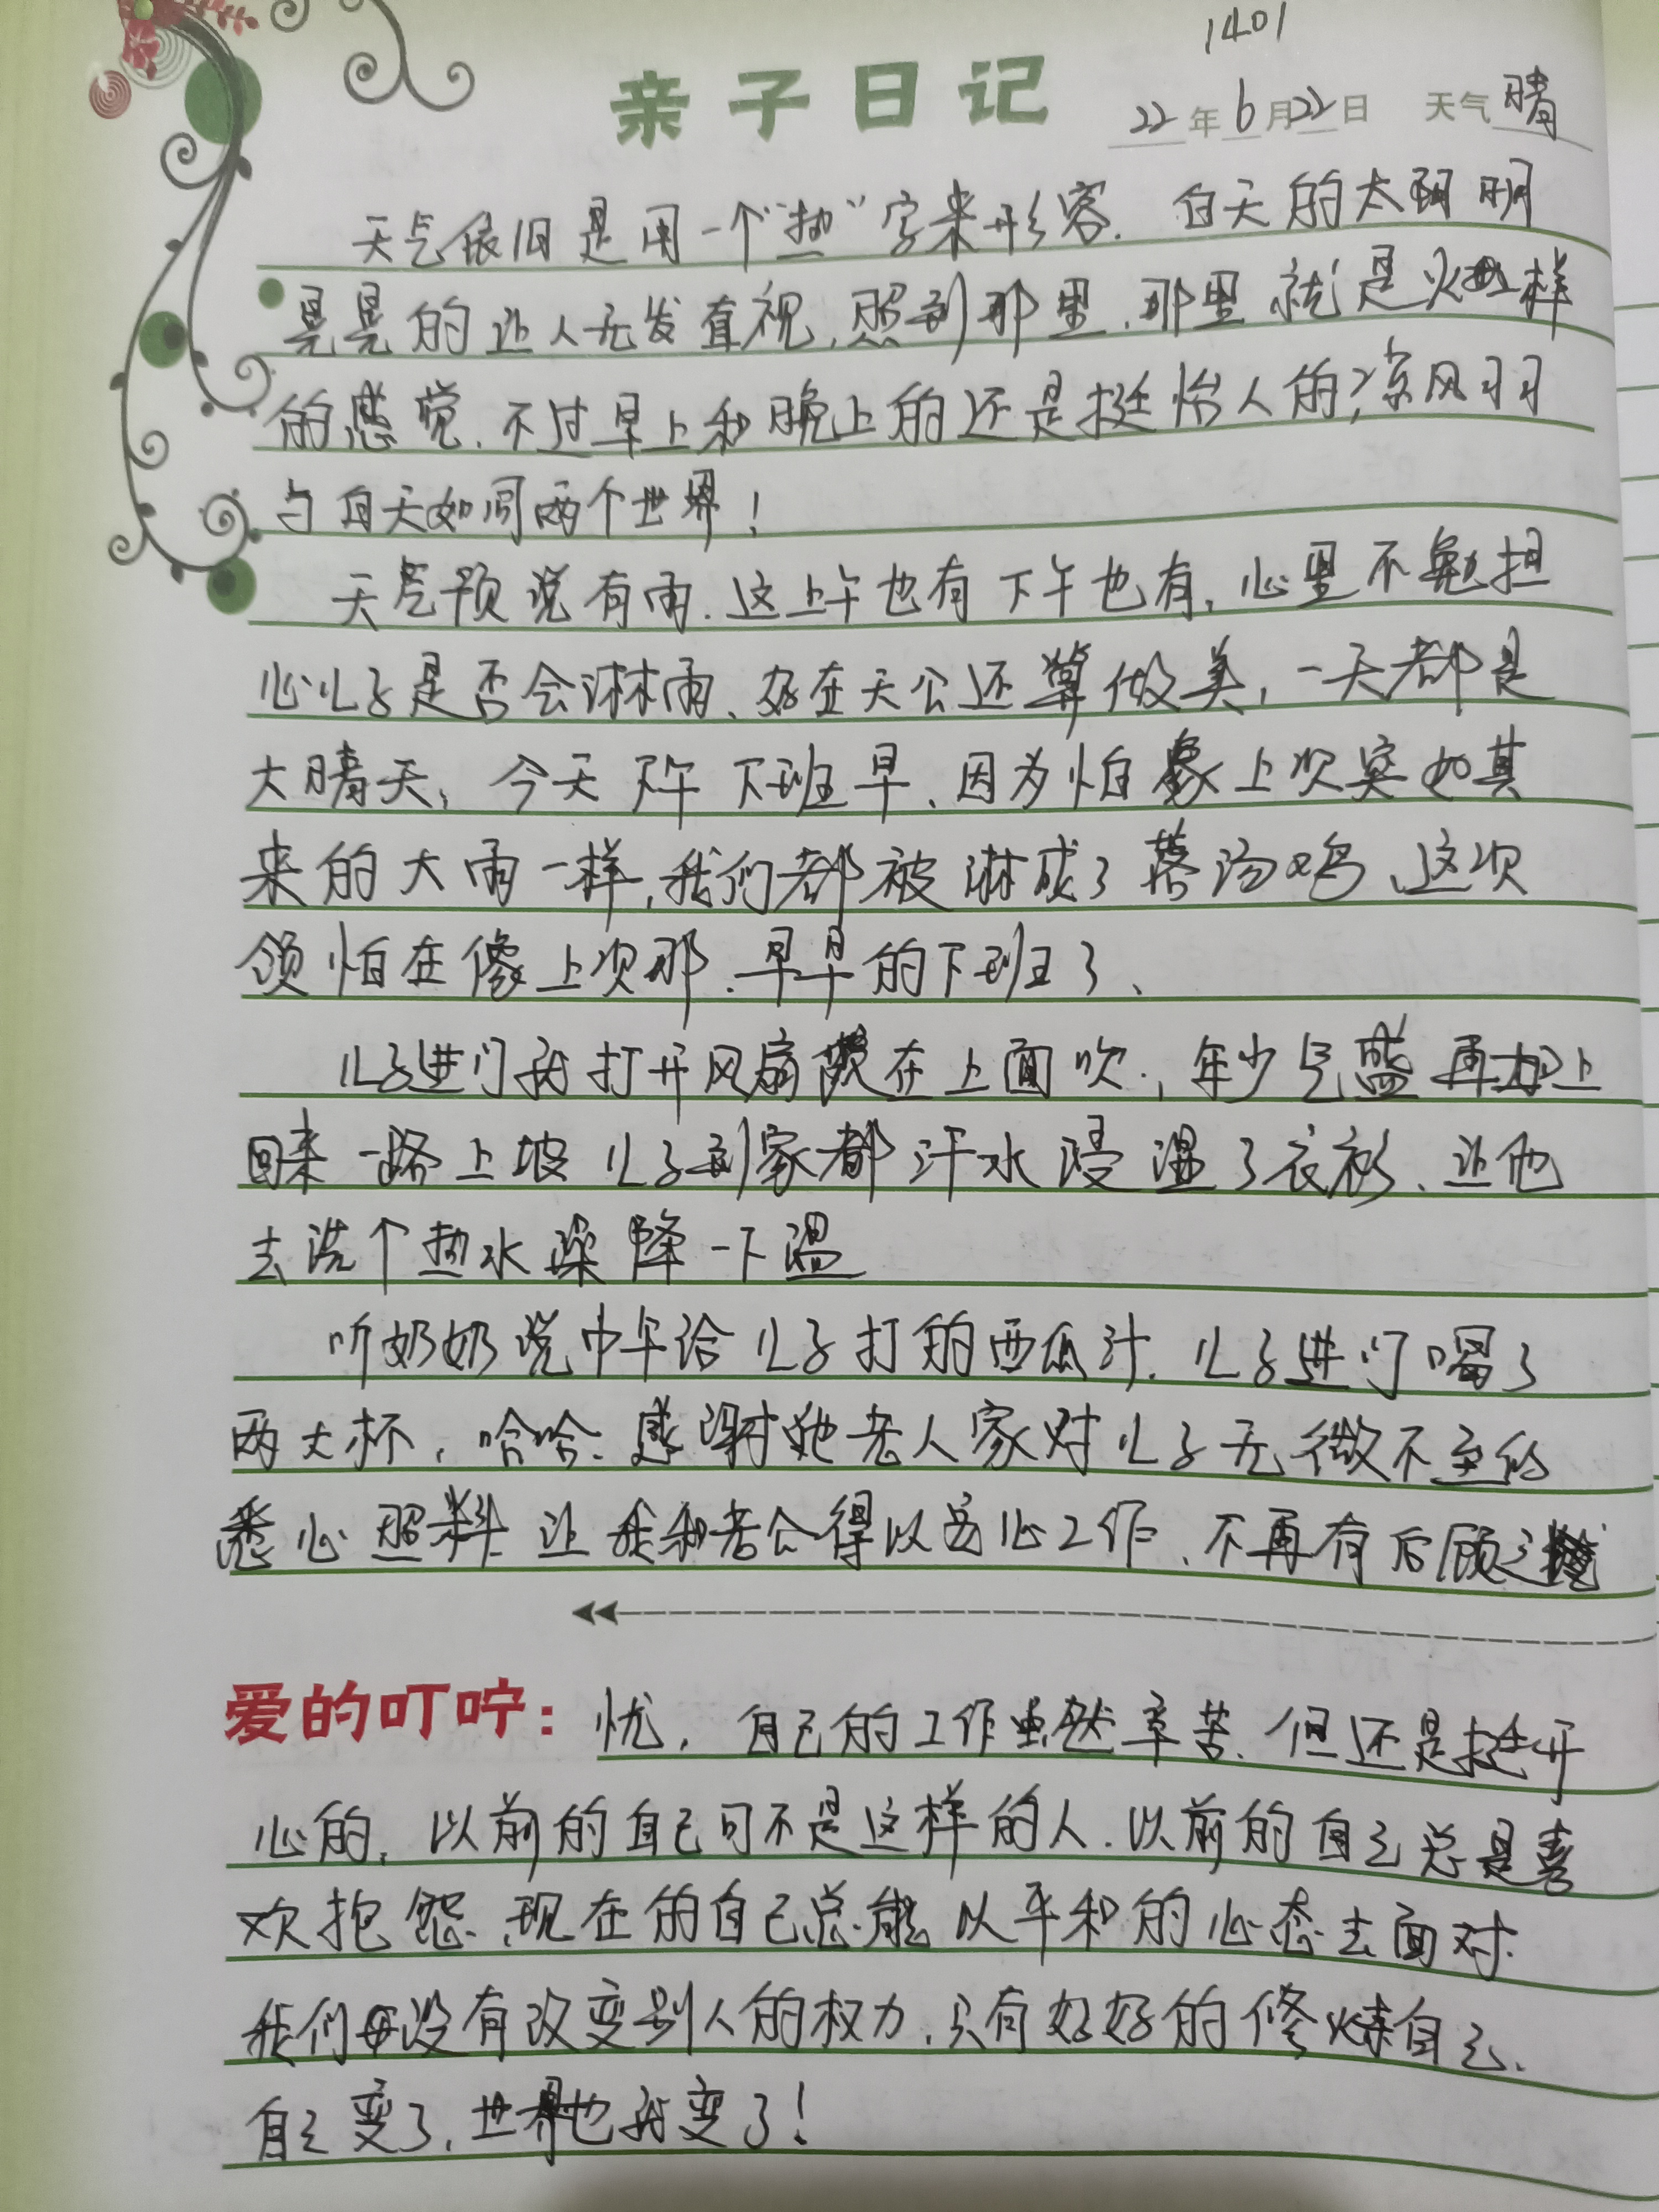 1401
亲子日记 22年6月22日 天气晴
天气依旧是用一个“热”字来形容.白天的太阳明
晃晃的让人无发直视,照到那里.那里就是火烤一样
的感觉.不过早上和晚上的还是挺怡人的,凉风习习
与白天如同两个世界!
天气预说有雨.这上午也有下午也有,心里不免担
心儿子是否会淋雨、好在天公还算做美,一天都是
大晴天,今天下午下班早、因为怕象上次突如其
来的大雨一样,我们都被淋成了落汤鸡、这次
怕在像上次那.早早的下班了、
儿子进门就打开风扇在上面吹.,年少气盛再加上
回来一路上坡儿子到家都汗水浸湿了衣衫、让他
去洗个热水澡降一下温
听奶奶说中午给儿子打的西瓜汁.儿子进门喝了
两大杯,哈哈.感谢她老人家对儿子无微不至的
悉心照料让我和老公得以安心工作、不再有后顾之
爱的叮咛:忧,自己的工作虽然辛苦、但还是挺开
心的,以前的自己可不是这样的人.以前的自己总是喜
欢抱怨、现在的自己总能以平和的心态去面对.
我们没有改变别人的权力,只有好好的修炼自己、
自己变了,世界也就变了!